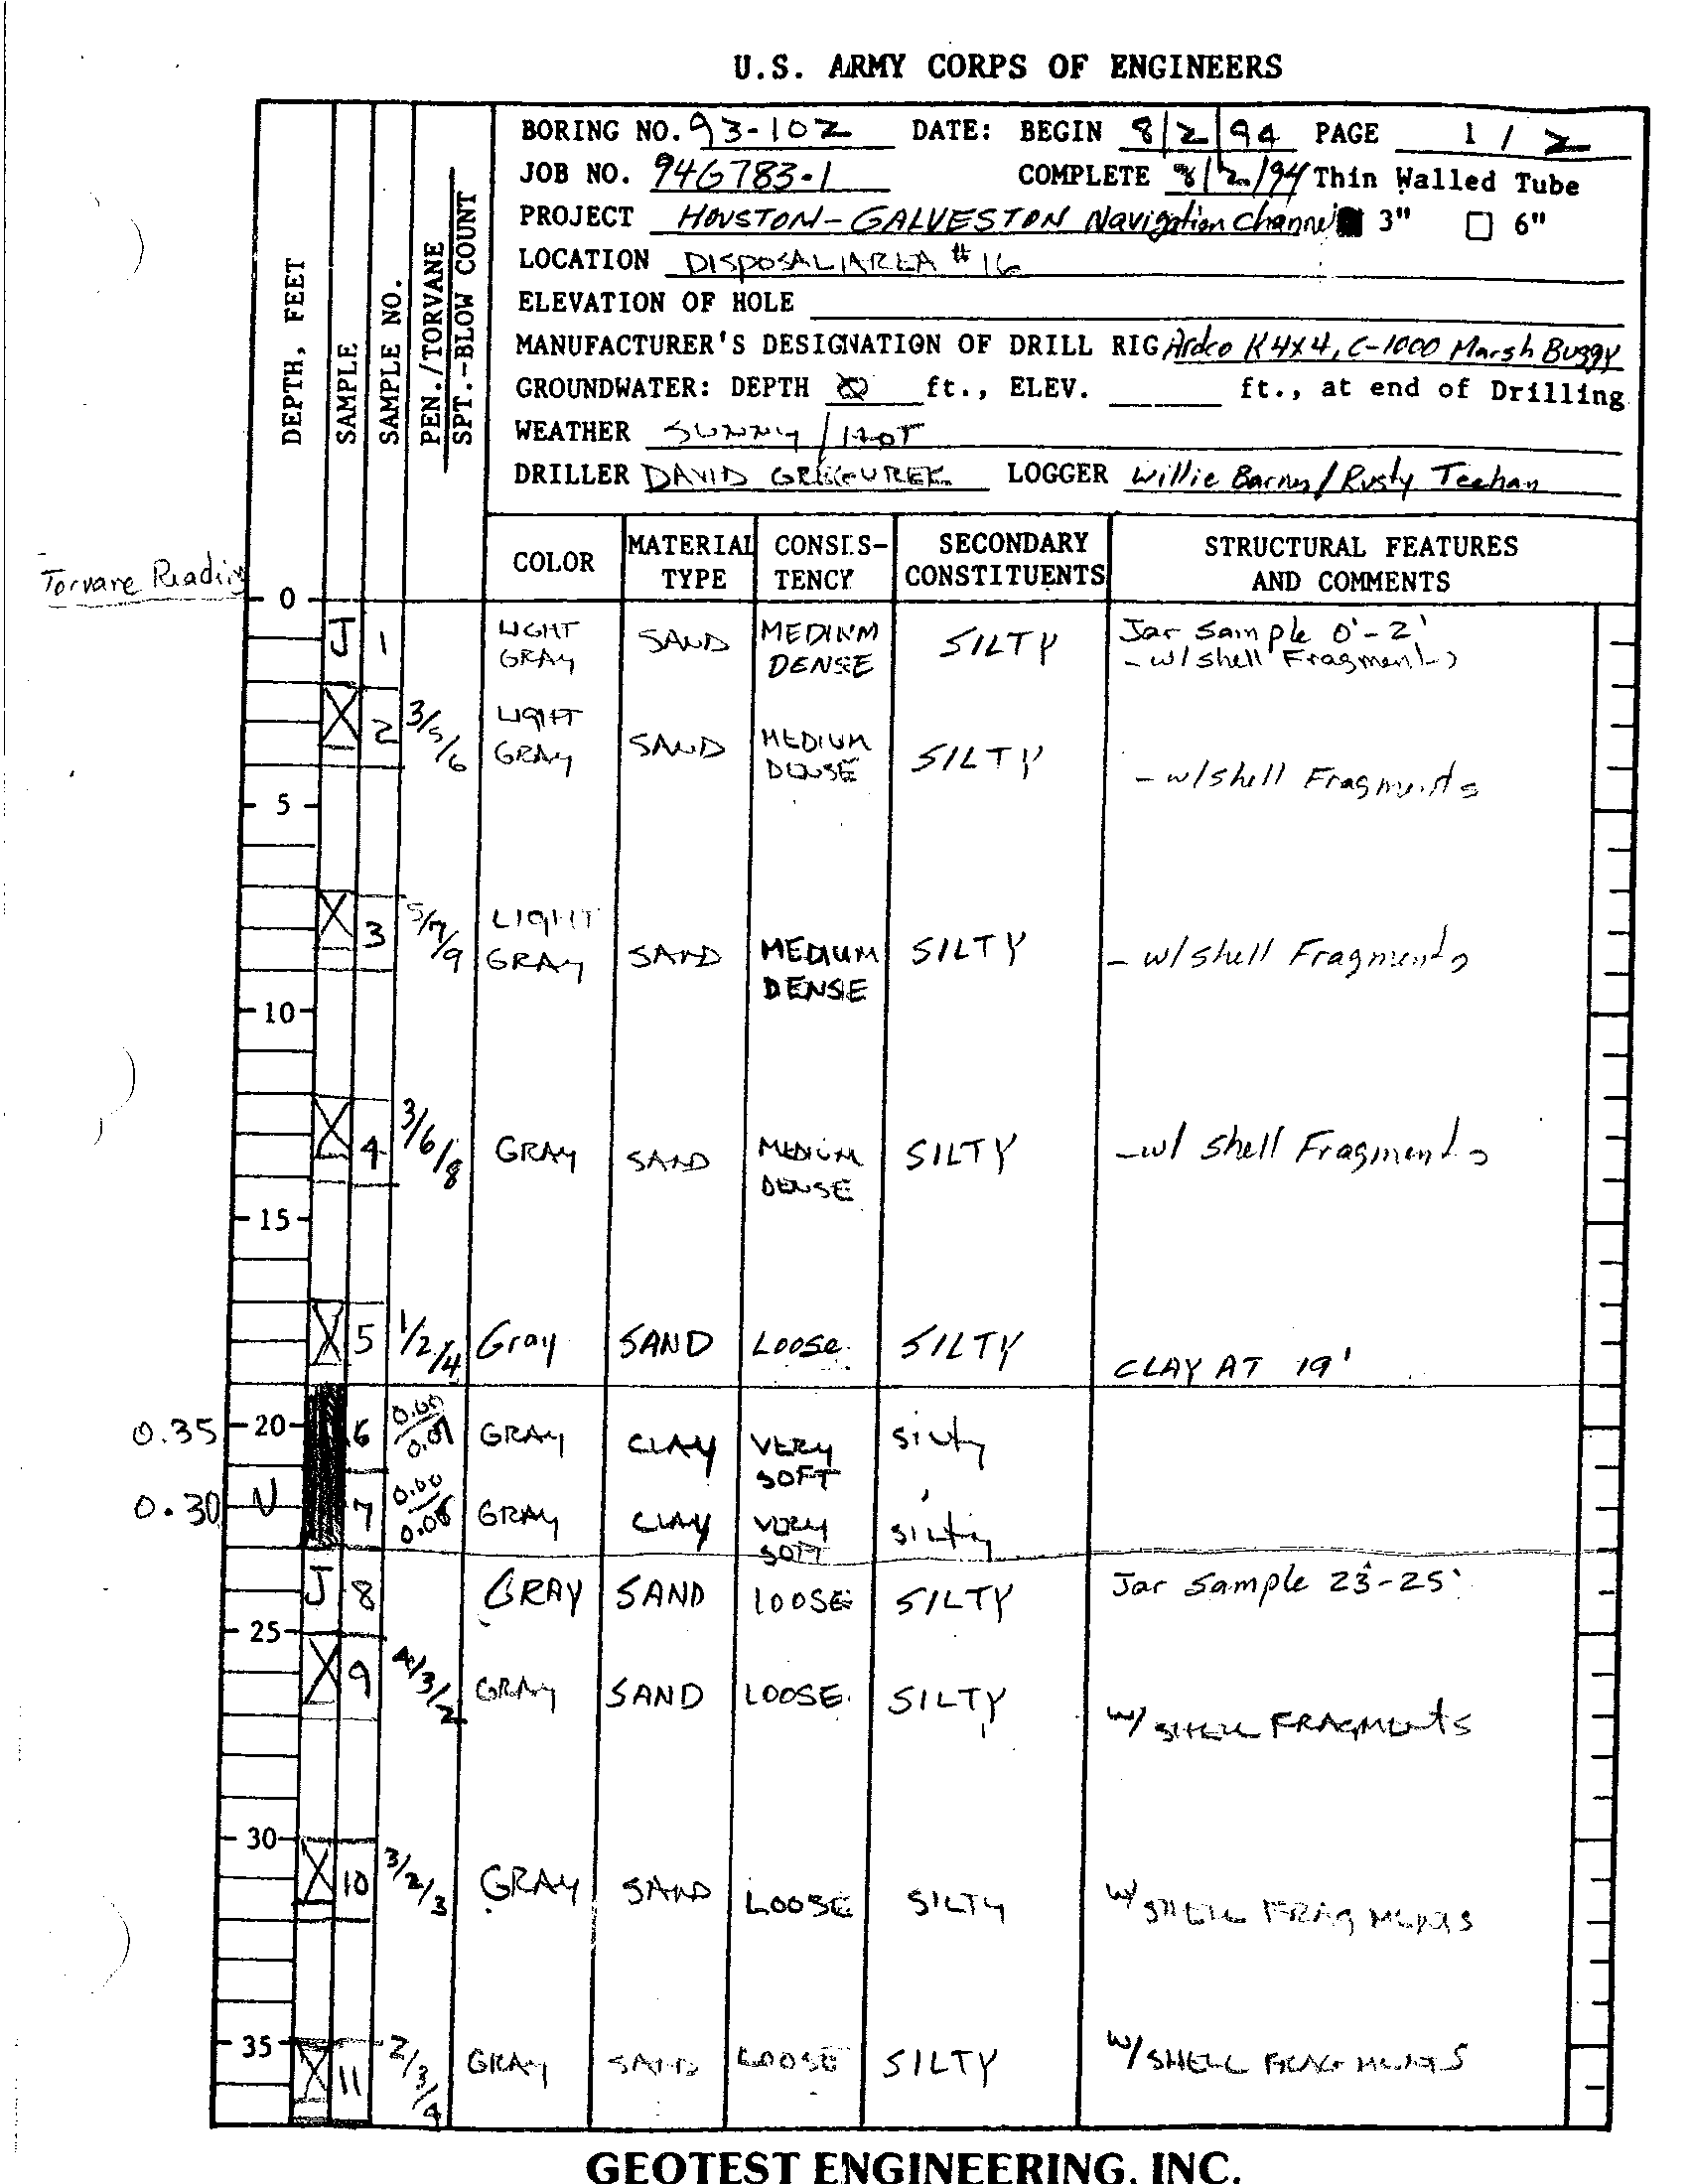 U.S. ARMY CORPS OF ENGINEERS
BORING NO. 93-102 DATE: BEGIN 8/2/94 PAGE 1 / 2
JOB NO. 94G783-1 COMPLETE 8/2/94 Thin Walled Tube
PROJECT HOUSTON-GALVESTON Navigation Channel 3" 6"
LOCATION DISPOSAL AREA #16
ELEVATION OF HOLE
MANUFACTURER'S DESIGNATION OF DRILL RIG Ardco K 4x4, C-1000 Marsh Buggy
GROUNDWATER: DEPTH ft., ELEV. ft., at end of Drilling
WEATHER SUNNY / HOT
DRILLER DAVID LOGGER Willie / Rusty Teehan
DEPTH, FEET
SAMPLE
SAMPLE NO.
PEN./TORVANE
SPT.-BLOW COUNT
COLOR MATERIAL TYPE CONSIS-TENCY SECONDARY CONSTITUENTS STRUCTURAL FEATURES AND COMMENTS
Torvane Reading
0
J 1 LIGHT GRAY SAND MEDIUM DENSE SILTY Jar Sample 0'-2'
- w/shell Fragments
2 3/5/6 LIGHT GRAY SAND MEDIUM DENSE SILTY - w/shell Fragments
5
3 5/7/9 LIGHT GRAY SAND MEDIUM DENSE SILTY - w/shell Fragments
10
4 3/6/8 GRAY SAND MEDIUM DENSE SILTY - w/ shell Fragments
15
5 1/2/4 Gray SAND LOOSE SILTY CLAY AT 19'
0.35 20 6 0.00 GRAY CLAY VERY SOFT silty
0.30 7 0.00 GRAY CLAY VERY SOFT silty
J 8 GRAY SAND LOOSE SILTY Jar Sample 23'-25'
25
9 4/3/2 GRAY SAND LOOSE SILTY w/ SHELL FRAGMENTS
30
10 3/2/3 GRAY SAND LOOSE SILTY w/ SHELL FRAGMENTS
35
11 2/3/4 GRAY SAND LOOSE SILTY w/ SHELL FRAGMENTS
GEOTEST ENGINEERING, INC.